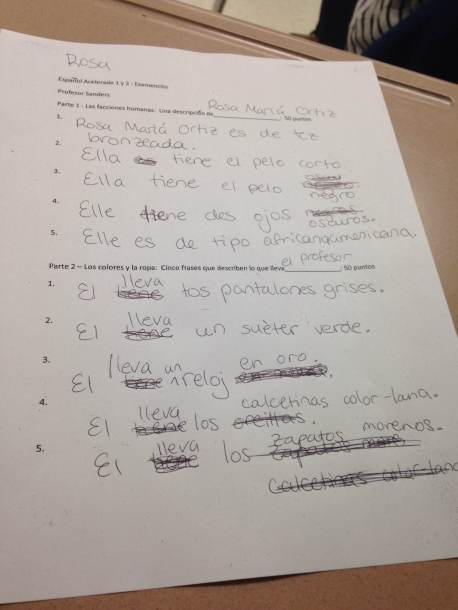 Rosa
Español Acelerado 1 y 2 - Examencito
Profesor Sanders
Parte 1 - Las facciones humanas: Una descripción de Rosa María Ortiz 50 puntos
1. Rosa María Ortiz es de tez
bronzeada.
2. Ella tiene el pelo corto.
3. Ella tiene el pelo negro
4. Elle tiene des ojos oscuros.
5. Elle es de tipo africanqamericana.
Parte 2 - Los colores y la ropa: Cinco frases que describen lo que lleva el profesor: 50 puntos
1. El lleva los pantalones grises.
2. El lleva un suèter verde.
3. El lleva un reloj en oro.
4. El lleva los calcetinas color-lana.
5. El lleva los zapatos morenos.